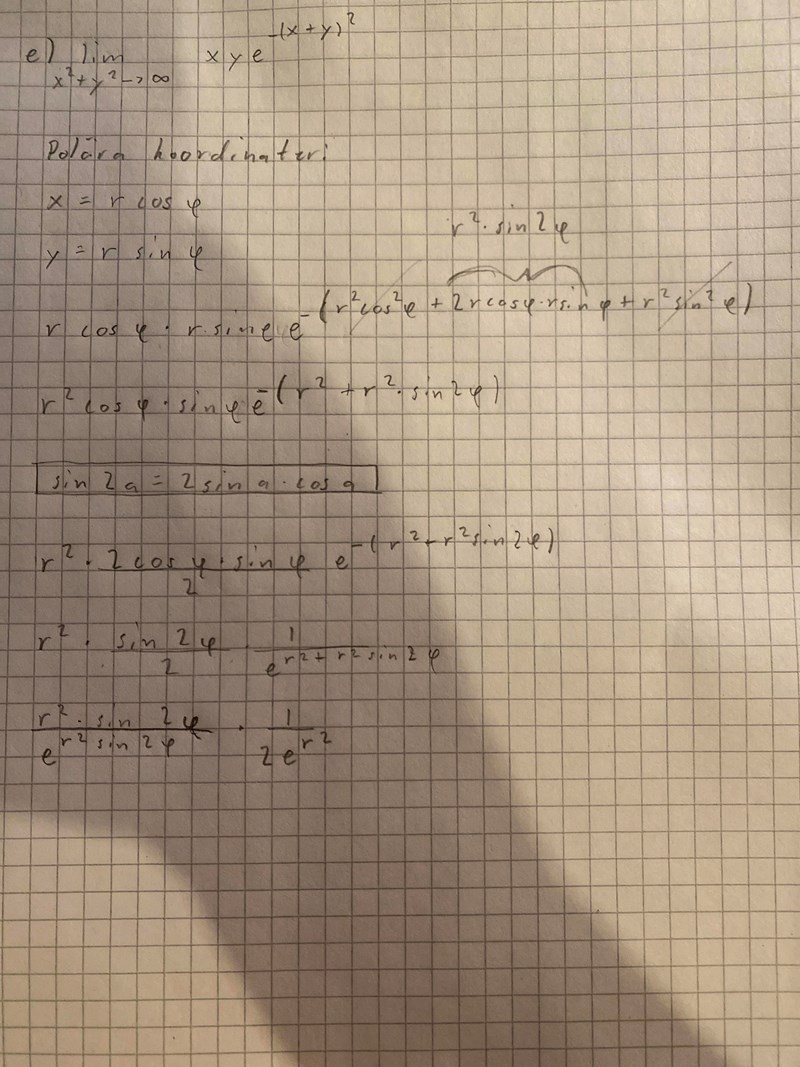 e) lim x y e^-(x+y)^2
x^2+y^2->∞
Polära koordinater:
x = r cos φ
y = r sin φ
r^2·sin 2φ
r cos φ · r·sin φ e^-(r^2cos^2φ + 2r cosφ·r sin φ + r^2 sin^2 φ)
r^2 cos φ · sin φ e^-(r^2 + r^2·sin 2φ)
sin 2a = 2 sin a · cos a
r^2 · (2 cos φ · sin φ)/2 e^-(r^2+r^2 sin 2φ)
r^2 · (sin 2φ)/2 · 1/(e^(r^2 + r^2 sin 2φ))
(r^2 · sin 2φ)/(e^(r^2 sin 2φ)) · 1/(2e^(r^2))